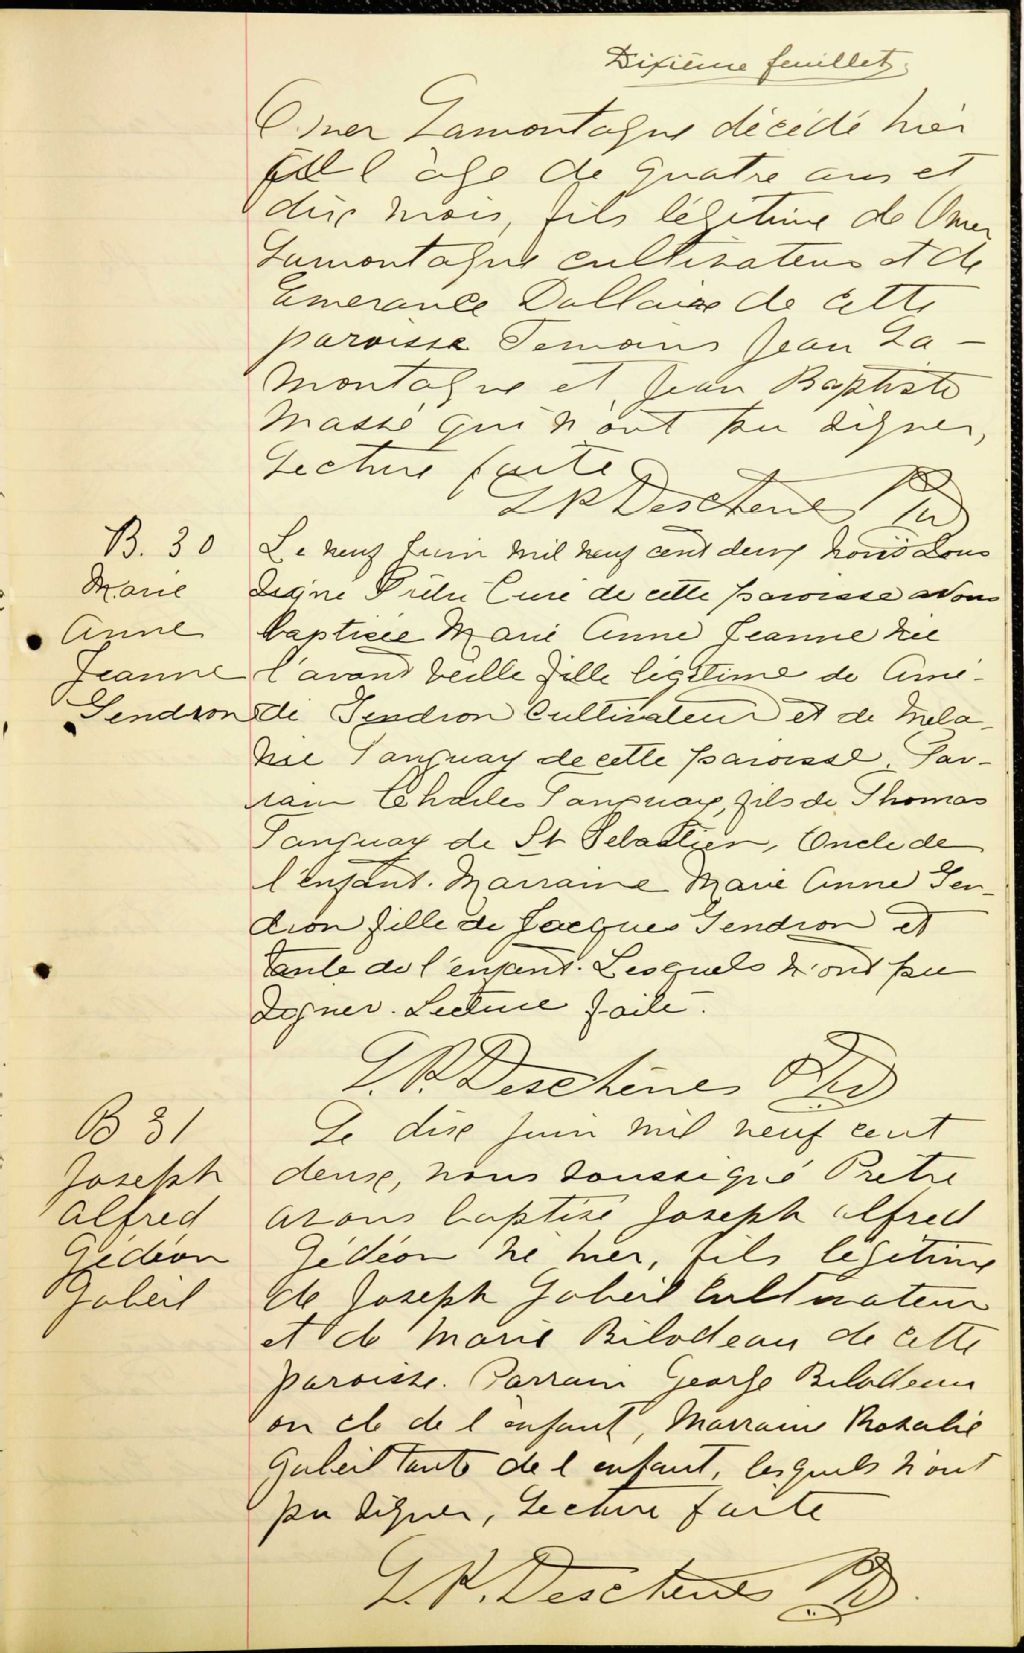 Dixième feuillet
Omer Lamontagne décédé hier
à l'âge de quatre ans et
dix mois, fils légitime de Omer
Lamontagne cultivateur et de
Emerance Dallaire de cette
paroisse Temoins Jean La-
montagne et Jean Baptiste
Massé qui n'ont pu signer,
Lecture faite
Deschenes Ptre
B. 30
Marie
Anne
Jeanne
Gendron
Le neuf Juin mil neuf cent deux nous sous
signé Prêtre Curé de cette paroisse avons
baptisée Marie Anne Jeanne née
l'avant veille fille légitime de Amé-
dé Gendron Cultivateur et de Mela-
nie Tanguay de cette paroisse. Par-
rain Charles Tanguay, fils de Thomas
Tanguay de St Sebastien, Oncle de
l'enfant. Marraine Marie Anne Gen-
dron fille de Jacques Gendron et
tante de l'enfant. Lesquels n'ont pu
signer. Lecture faite.
Deschênes Ptre
B 31
Joseph
Alfred
Gédéon
Gobeil
Le dix juin mil neuf cent
deux, nous soussigné Prêtre
avons baptisé Joseph Alfred
Gédéon né hier, fils légitime
de Joseph Gobeil Cultivateur
et de Marie Bilodeau de cette
paroisse. Parrain George Bilodeau
on cle de l enfant, Marraine Rosalie
Gobeil tante de l enfant, lesquels n'ont
pu signer, Lecture faite
Deschenes Ptre